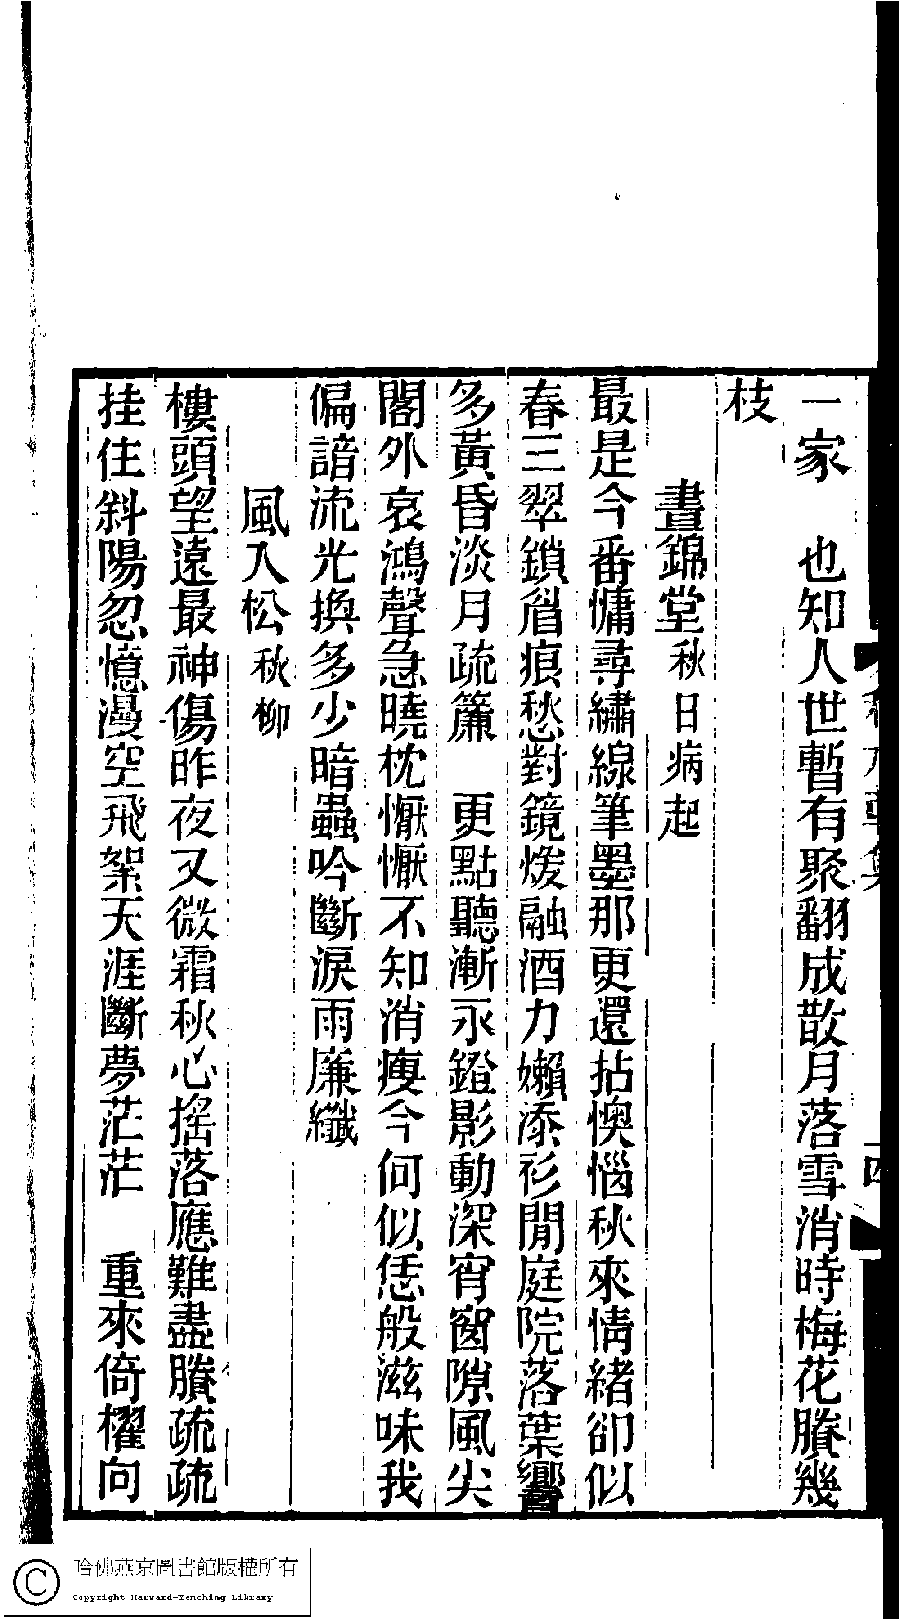 一家　也知人世暫有聚翻成散月落雪消時梅花賸幾
枝
晝錦堂秋日病起
最是今番慵尋繡線筆墨那更還拈懊惱秋來情緒卻似
春三翠鎖眉痕愁對鏡煖融酒力懶添衫閒庭院落葉響
多黃昏淡月疏簾　更點聽漸永鐙影動深宵窗隙風尖
閣外哀鴻聲急曉枕懨懨不知消瘦今何似恁般滋味我
偏諳流光換多少暗蟲吟斷淚雨廉纖
風入松秋柳
樓頭望遠最神傷昨夜又微霜秋心搖落應難盡賸疏疏
挂住斜陽忽憶漫空飛絮天涯斷夢茫茫　重來倚櫂向
四
哈佛燕京圖書館版權所有
Copyright Harvard-Yenching Library